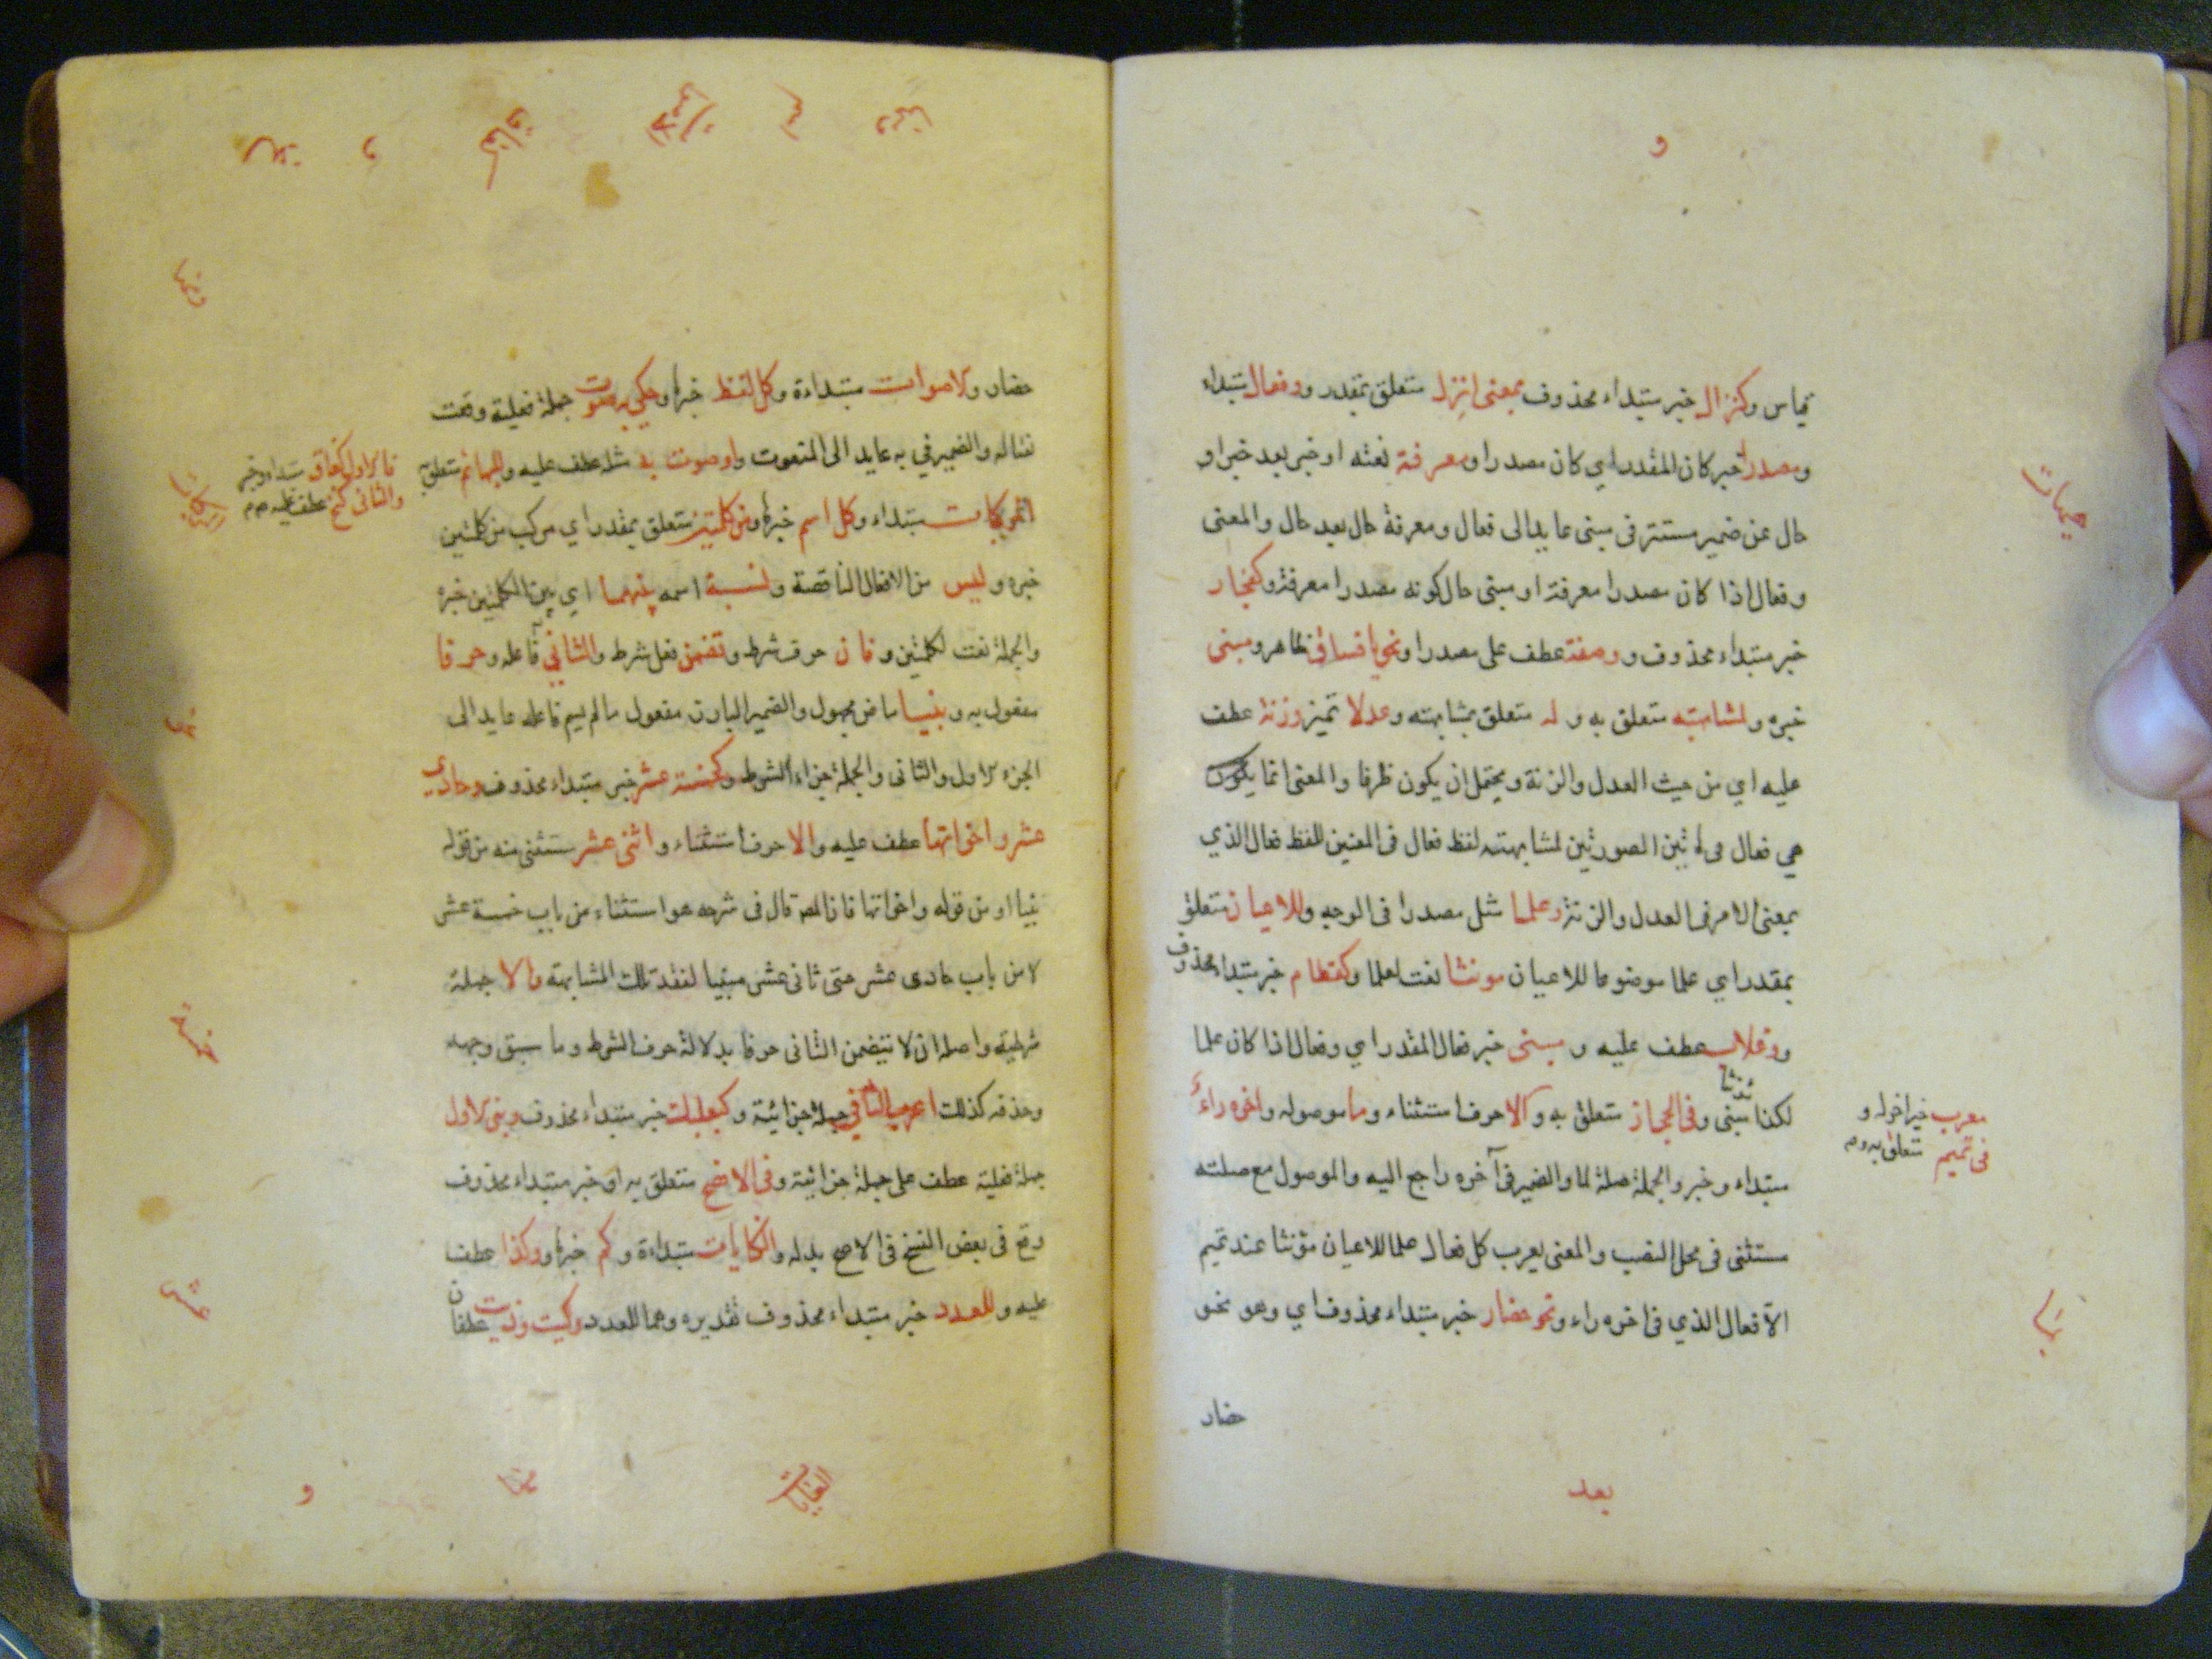 و
قياس وكنزال خبر مبتداء محذوف بمعنى انزل متعلق بمقدر ووفعال مبتداء
ومصدرا خبر كان المقدر اي كان مصدرا ومعرفة نعته او خبر بعد خبر او
حال عن ضمير مستتر في مبنى عايد الى فعال ومعرفة حال بعد حال والمعنى
وفعال اذا كان مصدرا معرفة او مبنى حال كونه مصدرا معرفة وكفجار
خبر مبتداء محذوف ووصفة عطف على مصدرا ونحو يا فساق ظاهر ومبنى
خبره ولمشابهته متعلق به وله متعلق بمشابهته وعدلا تميز وزنة عطف
عليه اي من حيث العدل والزنة ويحتمل ان يكون ظرفا والمعنى انما يكون
هي فعال في هاتين الصورتين لمشابهته لفظ فعال في المعنيين للفظ فعال الذي
بمعنى الامر في العدل والزنة وعلما مثل مصدرا في الوجه وللاعيان متعلق
بمقدر اي علما موضوعا للاعيان مونثا نعت لعلما وكقطام خبر مبتداء محذوف
ووغلاب عطف عليه و مبنى خبر فعال المقدر اي وفعال اذا كان علما
لكذا مبنى وفي الحجاز متعلق به والا حرف استثناء وما موصوله واخره راء
مبتداء وخبر والجملة صلة لما والضمير في آخره راجع اليه والموصول مع صلته
مستثنى في محل النصب والمعنى يعرب كل فعال علما للاعيان مؤنثا عند تميم
الا فعال الذي في اخره راء ونحو حضار خبر مبتداء محذوف اي وهو نحو
حضار
معرب خبر اخر له و
في تميم متعلق به
بعد
حضار والاصوات مبتداءة وكل لفظ خبرها وحكي به صوت جملة فعلية وقعت
نعتا له والضمير في به عايد الى المنعوت واو صوت به مثله عطف عليه وللبهائم متعلق به
المركبات مبتداء وكل اسم خبرها ومن كلمتين متعلق بمقدر اي مركب من كلمتين
خبره وليس من الافعال الناقصة ونسبة اسمه بينهما اي بين الكلمتين خبره
والجملة نعت لكلمتين وفان حرف شرط وتضمن فعل شرط والثاني فاعله وحرفا
مفعول به وبنيا ماض مجهول والضمير البارز مفعول ما لم يسم فاعله عايد الى
الجزء الاول والثاني والجملة جزاء الشرط وكخمسة عشر خبر مبتداء محذوف وحادي
عشر واخواتها عطف عليه والا حرف استثناء واثنى عشر مستثنى منه من قوله
بنيا او من قوله واخواتها فان المصـ قال في شرحه هو استثناء من باب خمسة عشر
لا من باب حادى عشر حتى ثاني عشر مبنيا لفقد تلك المشابهة والا جملة
شرطية واصله ان لا يتضمن الثاني حرفا بدلالة حرف الشرط وما سبق وجهه
وحذفه كذلك اعرب الثاني جملة جزائية وكبعلبك خبر مبتداء محذوف وبنى الاول
جملة فعلية عطف على جملة جزائية وفي الافصح متعلق به او خبر مبتداء محذوف
وقع في بعض النسخ في الاصح بدله والكنايات مبتداءة وكم خبرها ووكذا عطف
عليه وللعدد خبر مبتداء محذوف تقديره وهما للعدد وكيت وذيت عطفان
فالاول كغاق مبتداء وخبر
والثاني كنخ عطف عليه
الغايات
و